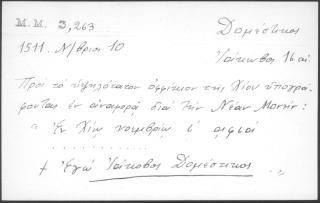 Μ.Μ. 3,263
Δομέστικος
1511. Ν/βριος 10
Ἰάκωβος 16 αἰ.
Πρὸς τὸ ὑψηλότατον ὀφφίκιον τῆς Χίου ὑπογρά-
φοντας ἐν ἀναφορᾷ διὰ τὴν Νέαν Μονήν:
" Ἐν Χίῳ νοεμβρίῳ ι΄ αφια΄
. . . . . . . . . .
+ Ἐγὼ Ἰάκωβος Δομέστικος